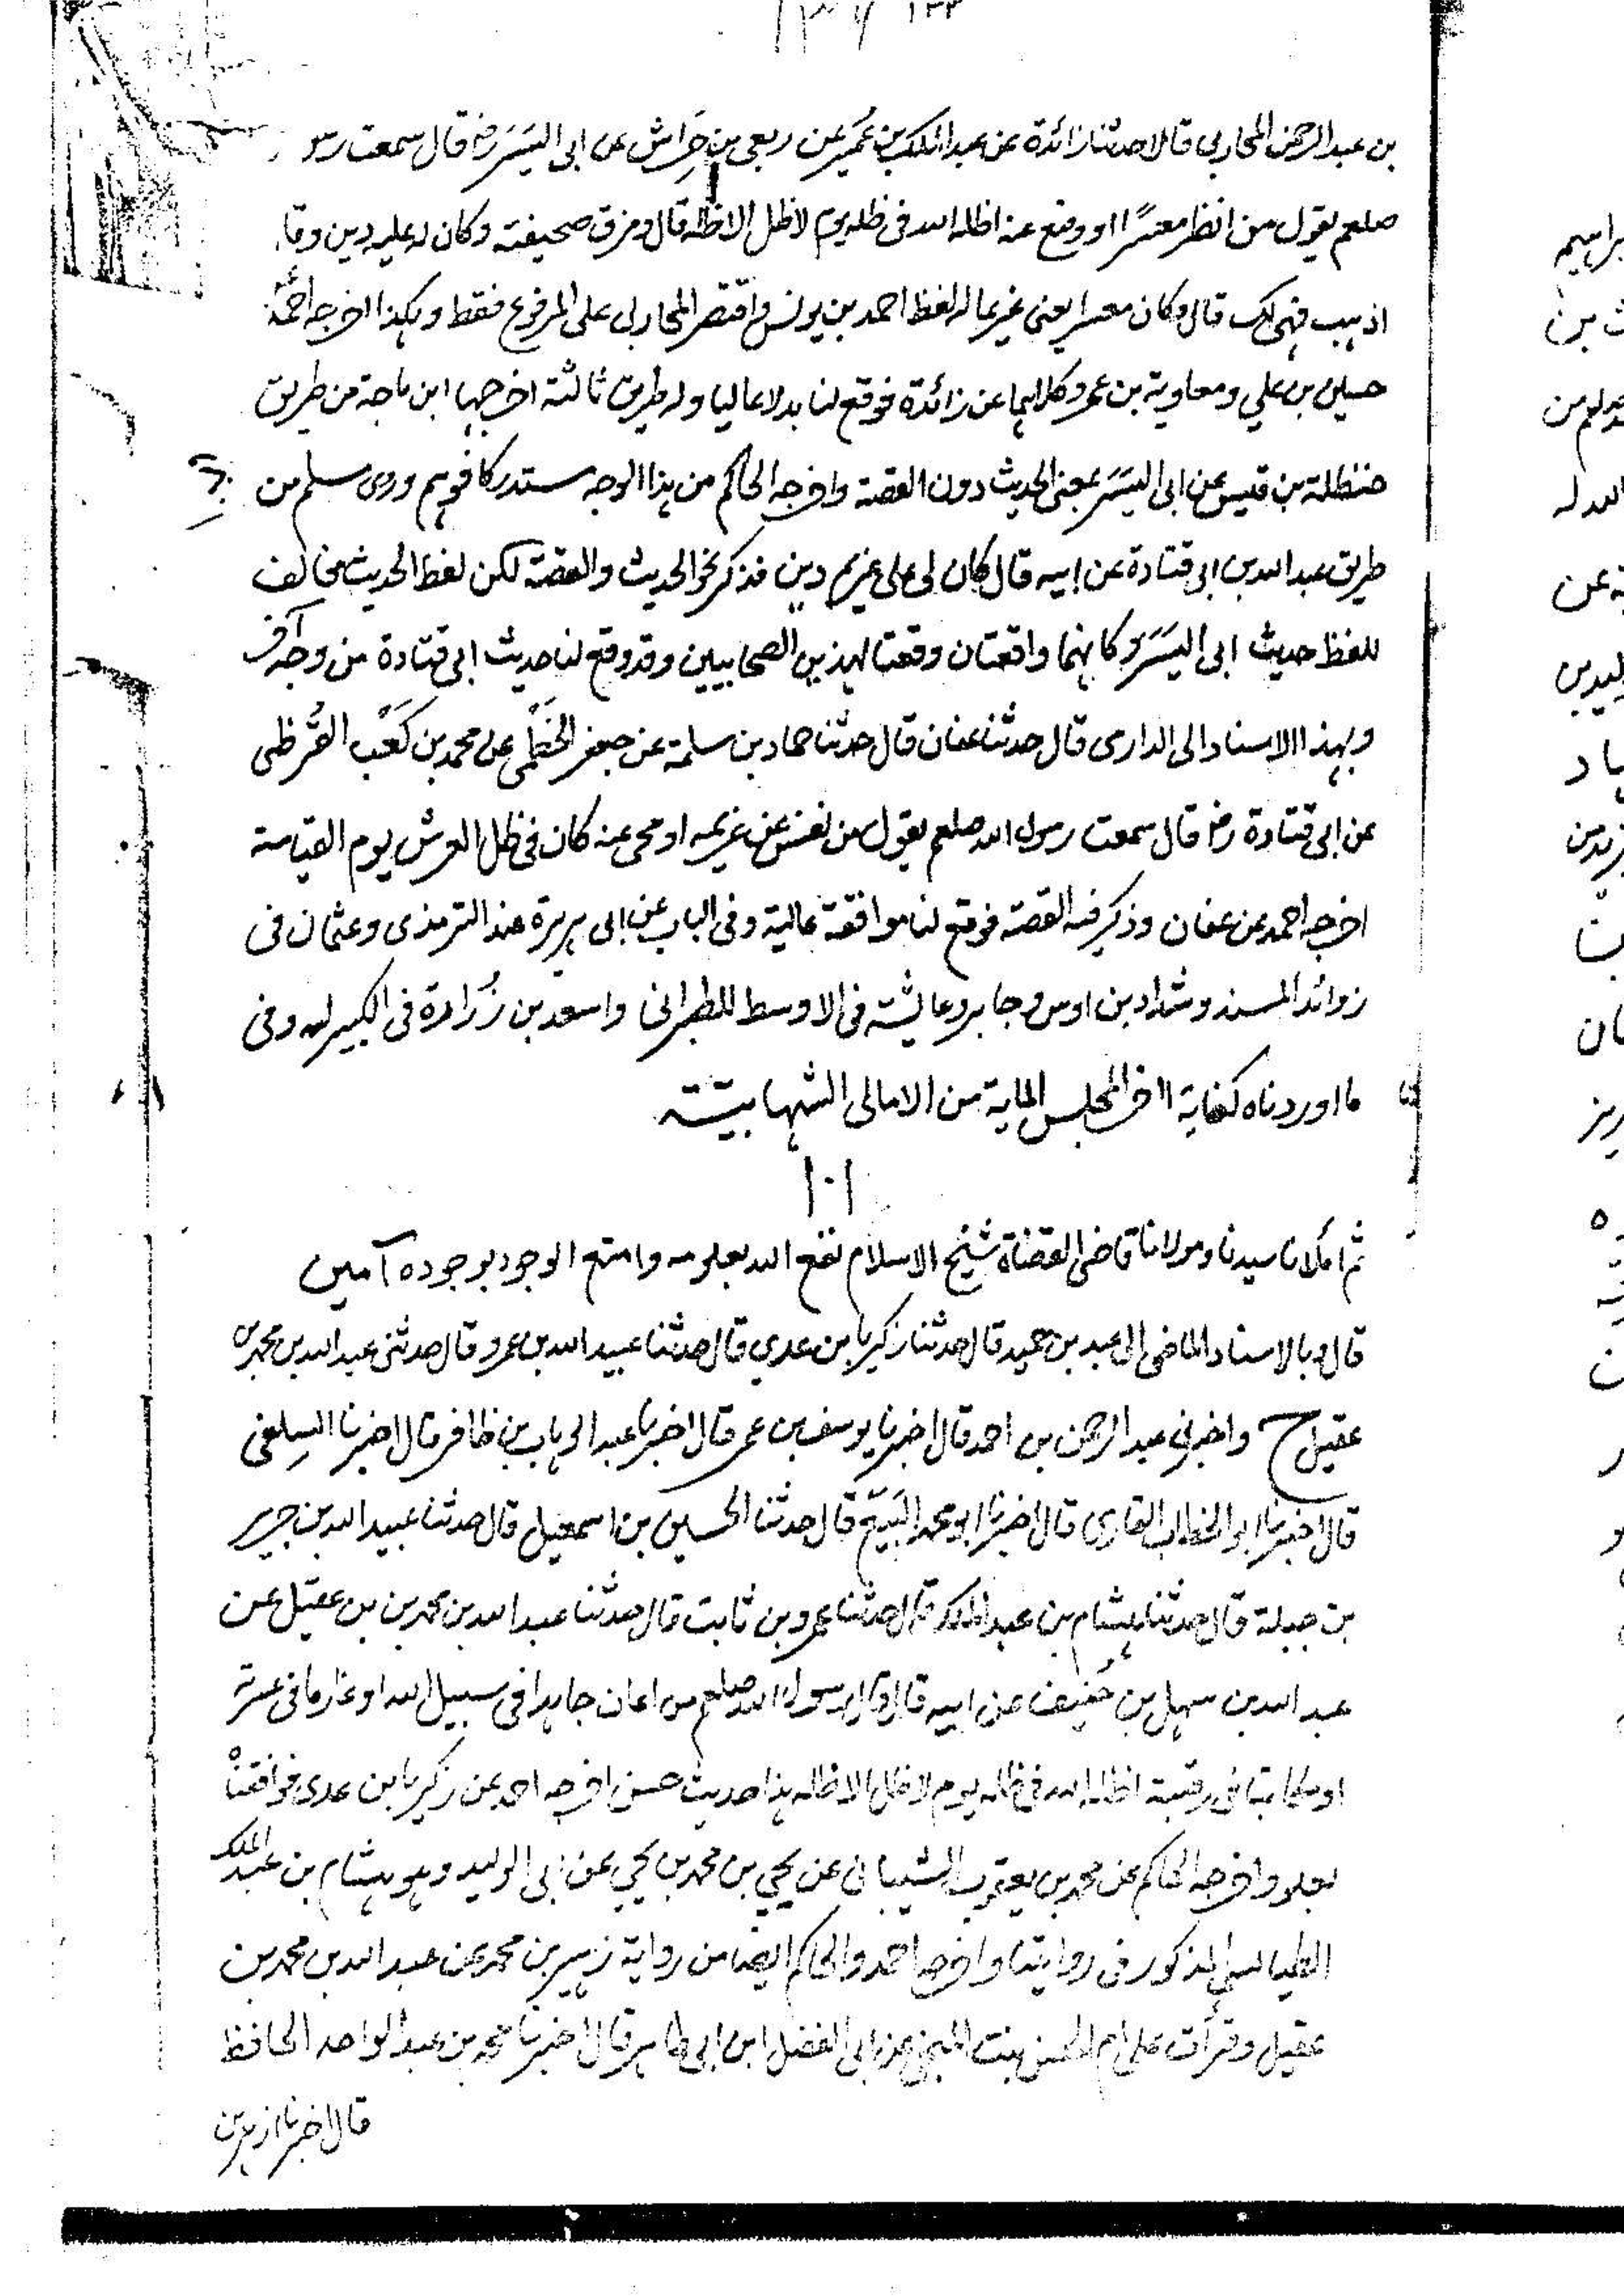 بن عبد الرحمن المحاربي قالا حدثنا زائدة عن عبد الملك بن عُمَير عن ربعي بن حِرَاش عن ابى اليَسَر رض قال سمعت رسو
صلعم يقول من انظر معسرًا او وضع عنه اظله الله فى ظله يوم لا ظل الا ظله قال ومزق صحيفته وكان له عليه دين وقا
اذهب فهى لك قال وكان معسرا يعنى غريما له لفظ احمد بن يونس واقتصر المحاربى على المرفوع فقط وهكذا اخرجه احمد عن
حسين بن علي ومعاوية بن عمرو كلاهما عن زائدة فوقع لنا بدلا عاليا وله طريق ثالثة اخرجها ابن ماجة من طريق
حنظلة بن قيس عن ابى اليَسَر بمعنى الحديث دون القصة واخرجه الحاكم من هذا الوجه مستدركا فوهم وروى مسلم من
طريق عبد الله بن ابى قتادة عن ابيه قال كان لى على غريم دين فذكر نحو الحديث والقصة لكن لفظ الحديث مخالف
للفظ حديث ابى اليَسَر وكانهما واقعتان وقعتا لهذين الصحابيين وقد وقع لنا حديث ابى قتادة من وجه آخر
وبهذا الاسناد الى الدارى قال حدثنا عفان قال حدثنا حماد بن سلمة عن جعفر الخَطْمى عن محمد بن كَعْب القُرظى
عن ابى قتادة رض قال سمعت رسول الله صلعم يقول من نفس عن غريمه او محى عنه كان فى ظل العرش يوم القيامة
اخرجه احمد عن عفان وذكر فيه القصة فوقع لنا موافقة عالية وفى الباب عن ابى هريرة عند الترمذى وعثمان فى
زوائد المسند وشداد بن اوس وجابر وعائشة فى الاوسط للطبرانى واسعد بن زُرَارة فى الكبير له وفى
ما اوردناه كفاية اخر المجلس الماية من الامالى الشهابيّة
١٠١
ثم املانا سيدنا ومولانا قاضى القضاة شيخ الاسلام نفع الله بعلومه وامتع الوجود بوجوده آمين
قال وبالاسناد الماضى الى عبد بن حميد قال حدثنا زكريا بن عدي قال حدثنا عبيد الله بن عمرو قال حدثنى عبد الله بن محمد بن
عقيل ح واخبرنى عبد الرحمن بن احمد قال اخبرنا يوسف بن عمر قال اخبرنا عبد الوهاب بن ظافر قال اخبرنا السِلفى
قال اخبرنا ابو الخطاب القارى قال اخبرنا ابو محمد البَيّع قال حدثنا الحسين بن اسمعيل قال حدثنا عبيد الله بن جرير
بن جبلة قال حدثنا هشام بن عبد الملك قال حدثنا عمرو بن ثابت قال حدثنا عبد الله بن محمد بن بن عقيل عن
عبد الله بن سهل بن حُنيف عن ابيه قال قال رسول الله صلعم من اعان جاهدا فى سبيل الله او غارما فى عسرته
او مكاتبا فى رقبته اظله الله فى ظله يوم لا ظل الا ظله هذا حديث حسن اخرجه احمد عن زكريا بن عدى فوافقناه
بعلو واخرجه الحاكم عن محمد بن يعقوب الشيبانى عن يحيى بن محمد بن يحيى عن ابى الوليد وهو هشام بن عبد الملك
الطيالسى المذكور فى روايتنا واخرجه احمد والحاكم ايضا من رواية زهير بن محمد عن عبد الله بن محمد بن
عقيل وقرأت على ام الحسن بنت المنجى عن ابى الفضل ابن ابى طاهر قال اخبرنا محمد بن عبد الواحد الحافظ
قال اخبرنا